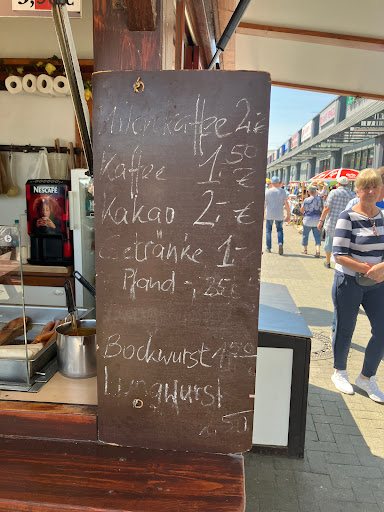 Milchkaffee 2,- €
Kaffee 1,50 €
Kakao 2,- €
Getränke 1,-
Pfand -,25 €
Bockwurst 1,50
Lungwurst
1,50
NESCAFÉ